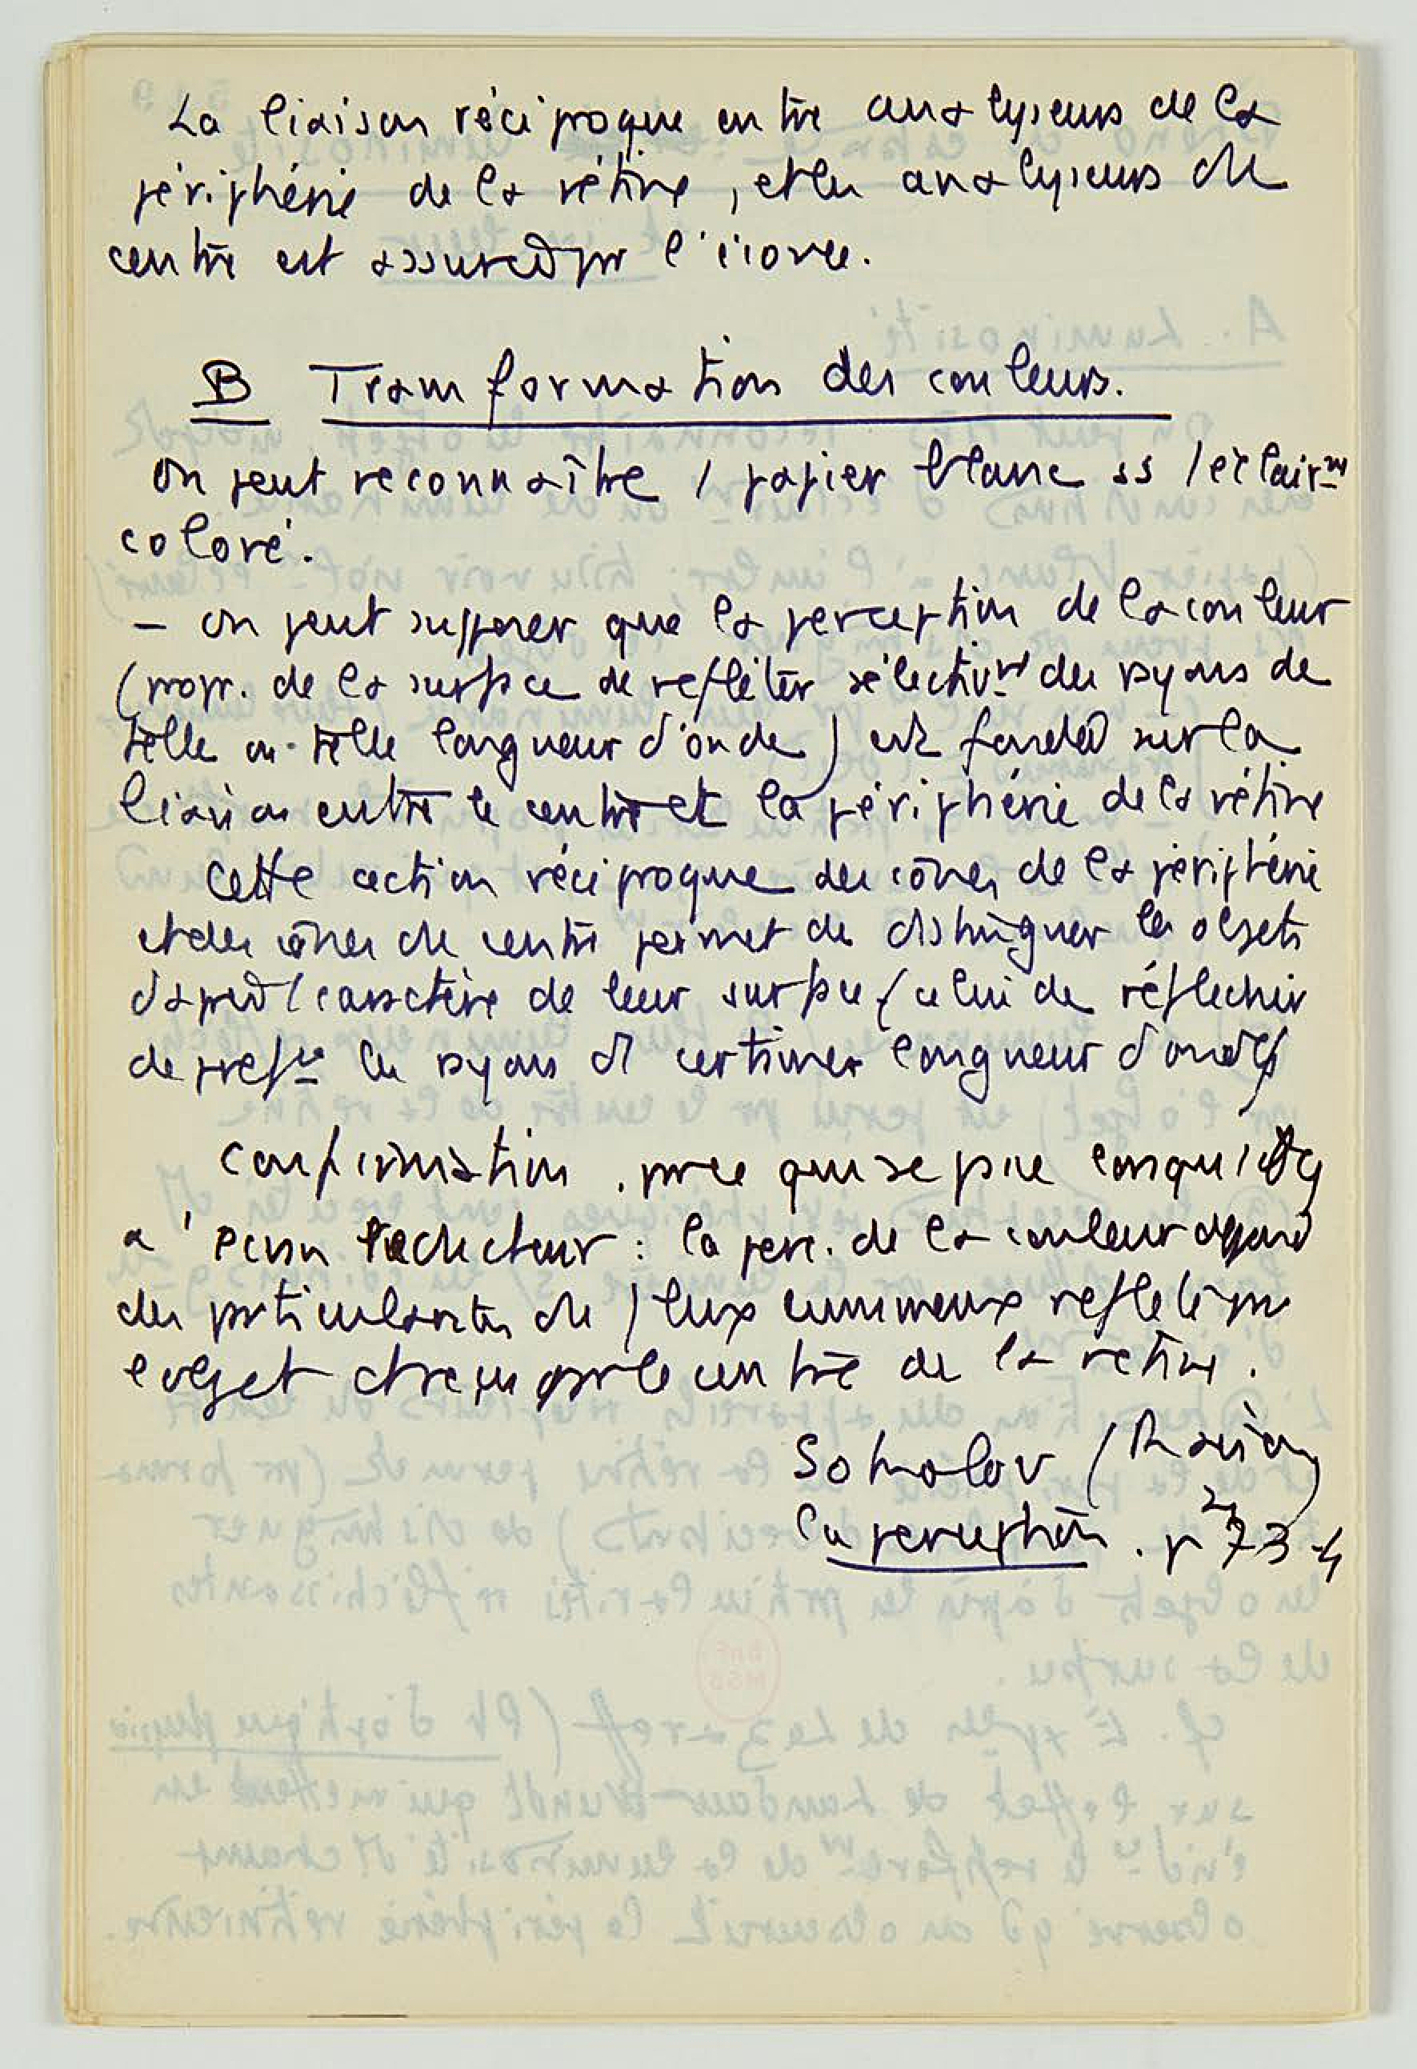 La liaison réciproque entre analyseurs de la
périphérie de la rétine, et les analyseurs du
centre est assurée par l'écorce.
B Transformation des couleurs.
On peut reconnaître 1 papier blanc ss 1 éclairmt
coloré.
– on peut supposer que la perception de la couleur
(propr. de la surface de refléter sélectivmt des rayons de
telle ou telle longueur d'onde) est fondée sur la
liaison entre le centre et la périphérie de la rétine
Cette action réciproque des cônes de la périphérie
et des cônes du centre permet de distinguer les objets
d'après le caractère de leur surface (celui de réfléchir
de préfce les rayons de certaines longueur d'onde)
Confirmation par ce qui se passe lorsqu'
à réducteur : la perc. de la couleur dépend
des particularités du flux lumineux reflété par
l'objet et reçu par le centre de la rétine.
Sokolov (
La perception. p 273-4